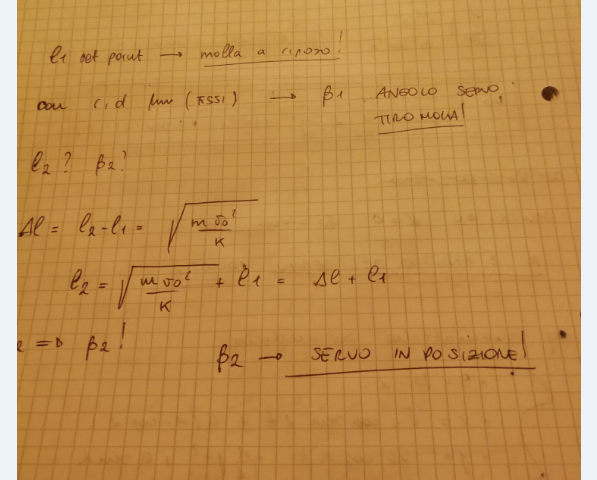 l1 set point → molla a riposo!
con r, d (FISSI) → β1 ANGOLO SERVO,
TIRO MOLLA!
l2? β2?
Δl = l2-l1 = √(m v0²/K)
l2 = √(m v0²/K) + l1 = Δl + l1
2 => β2!
β2 → SERVO IN POSIZIONE!